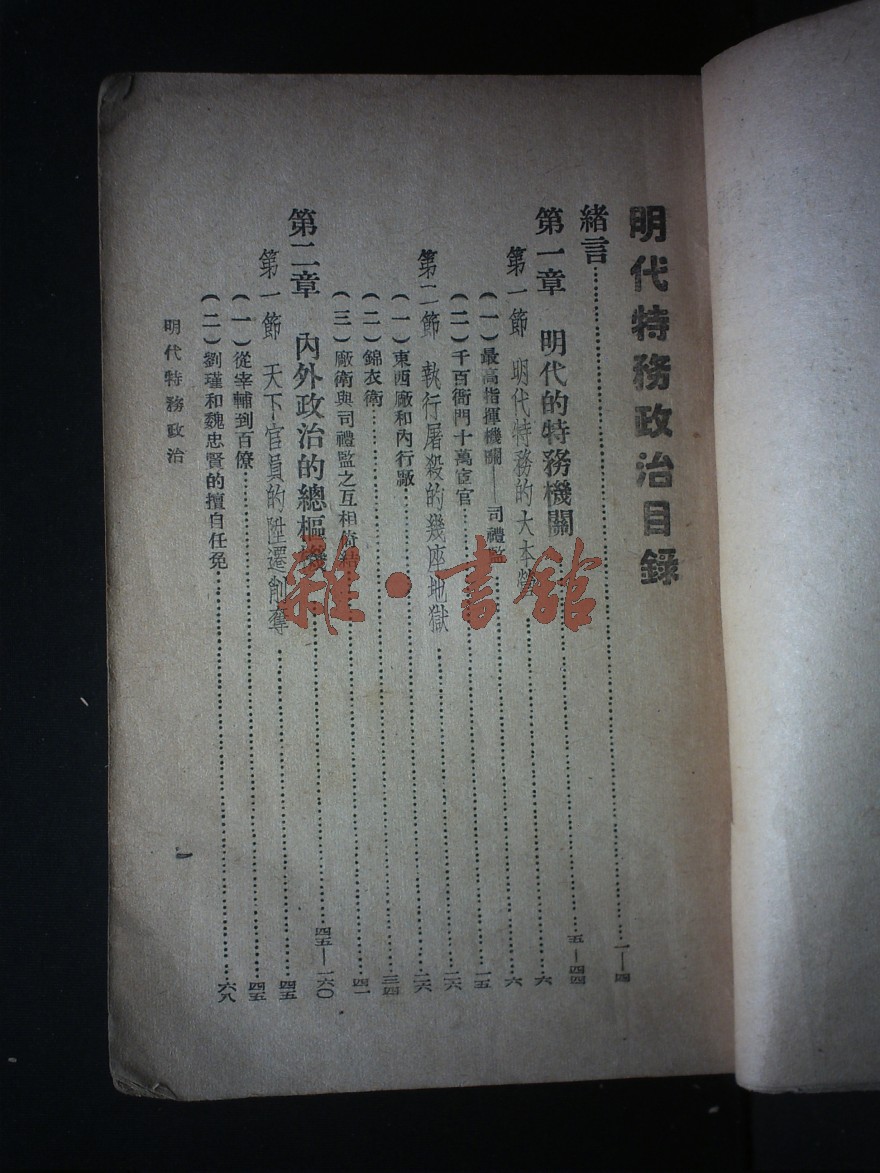 明代特務政治目錄
緒言……一—四
第一章 明代的特務機關……五—四四
第一節 明代特務的大本營……六
(一)最高指揮機關——司禮監……六
(二)千百衙門十萬宦官……一五
第二節 執行屠殺的幾座地獄……二六
(一)東西廠和內行廠……二六
(二)錦衣衛……三四
(三)廠衛與司禮監之互相……四一
第二章 內外政治的總樞機……四五—一六〇
第一節 天下官員的陞遷削奪……四五
(一)從宰輔到百僚……四五
(二)劉瑾和魏忠賢的擅自任免……六八
明代特務政治
一
雜·書館